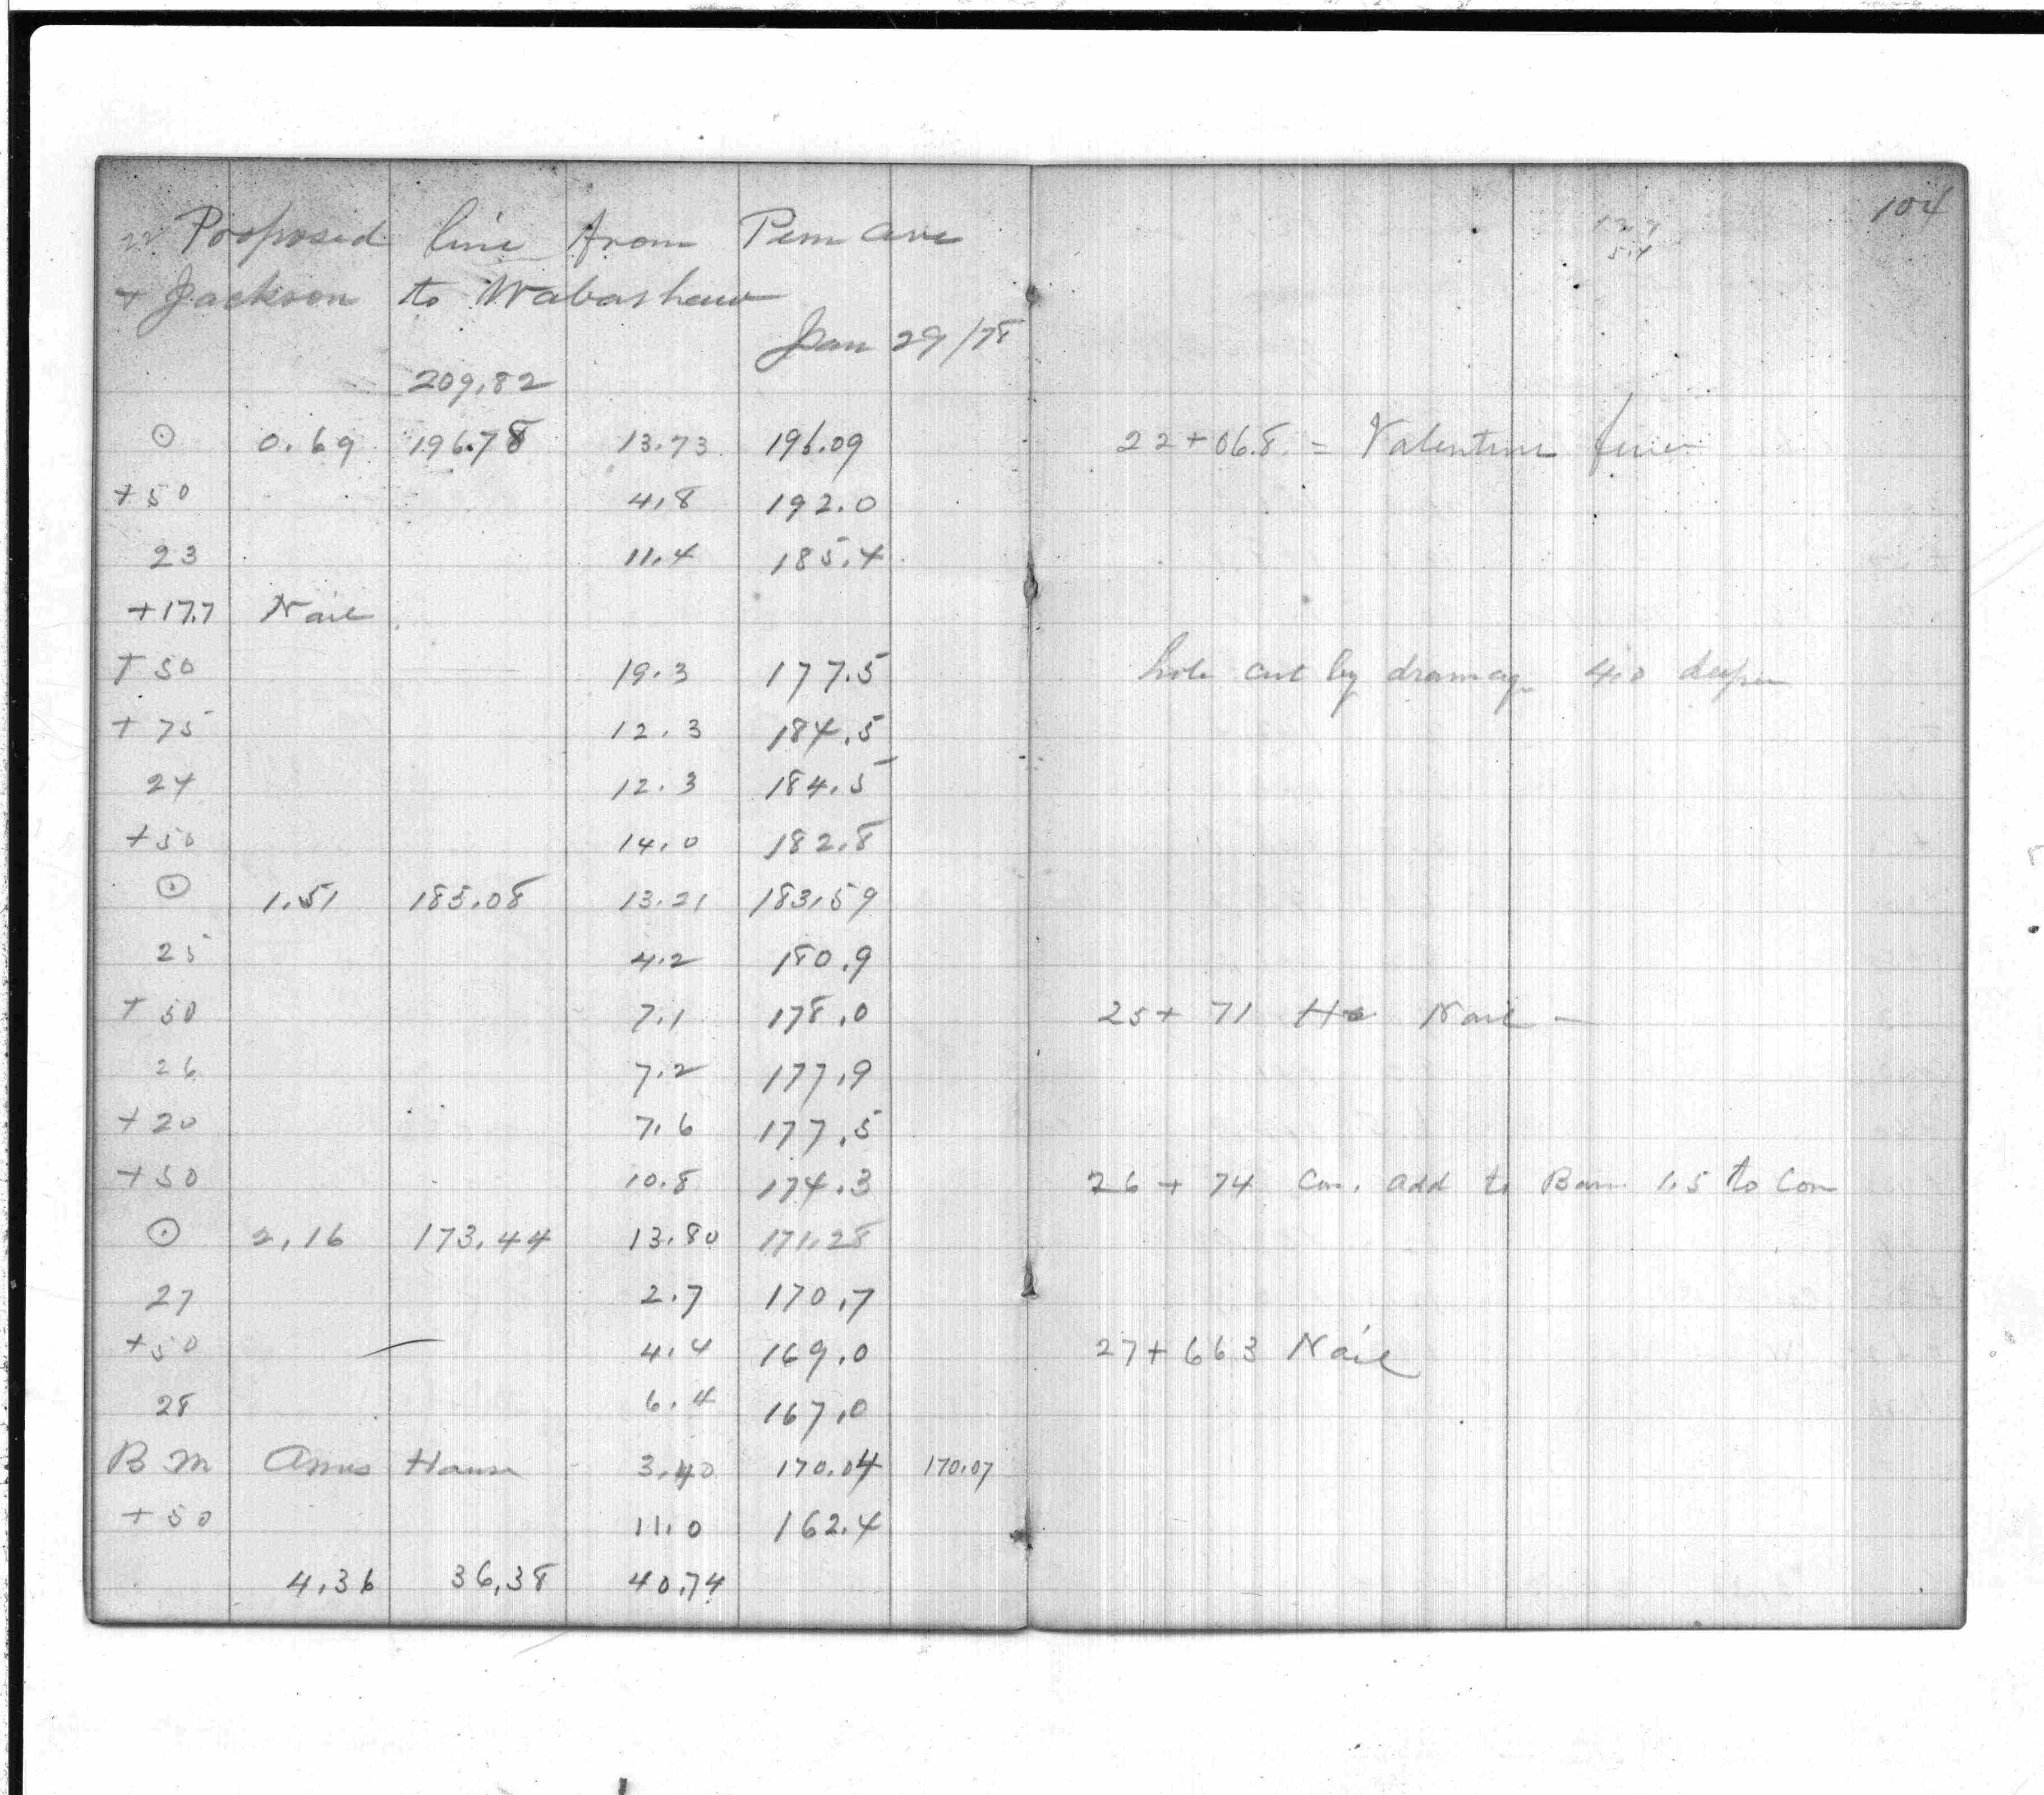 Proposed line from Penn ave
+ Jackson to Wabashaw
Jan 29/78
209.82
⊙ 0.69 196.78 13.73 196.09
+50 4.8 192.0
23 11.4 185.4
+17.7 Nail
+50 19.3 177.5
+75 12.3 184.5
24 12.3 184.5
+50 14.0 182.8
⊙ 1.51 185.08 13.21 183.59
25 4.2 180.9
+50 7.1 178.0
26 7.2 177.9
+20 7.6 177.5
+50 10.8 174.3
⊙ 2.16 173.44 13.80 171.28
27 2.7 170.7
+50 4.4 169.0
28 6.4 167.0
B M 3.40 170.04 170.07
+50 11.0 162.4
4.36 36.38 40.74
104
22+06.8 = Valentine
hole cut by 4.0 deeper
25+71 Nail
26+74 Cor. add to Barn 1.5 to Cor
27+663 Nail